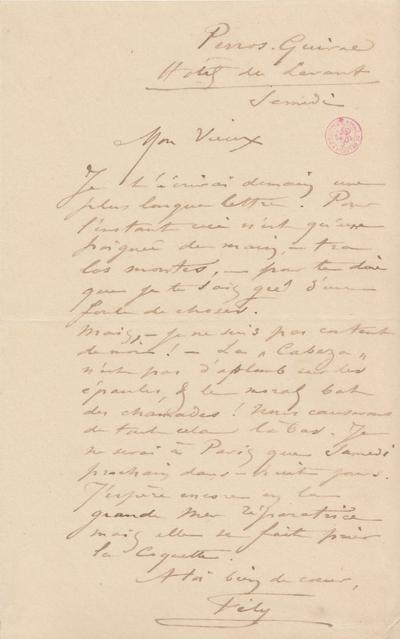 Perros-Guirec
Hôtel du Levant
Samedi
Mon Vieux
Je t'écrirai demain une
plus longue lettre. Pour
l'instant ceci n'est qu'une
poignée de main, - tra
los montes, - pour te dire
que je te sais gré d'une
foule de choses.
Mais, - je ne suis pas content
de moi! - La "Cabeza"
n'est pas d'aplomb sur les
épaules, & le moral bat
des chamades! Nous causerons
de tout cela là bas. Je
ne serai à Paris que Samedi
prochain dans - huit jours.
J'espère encore en la
grande mer réparatrice
mais elle se fait prier
la Coquette.
A toi bien de coeur,
Fély